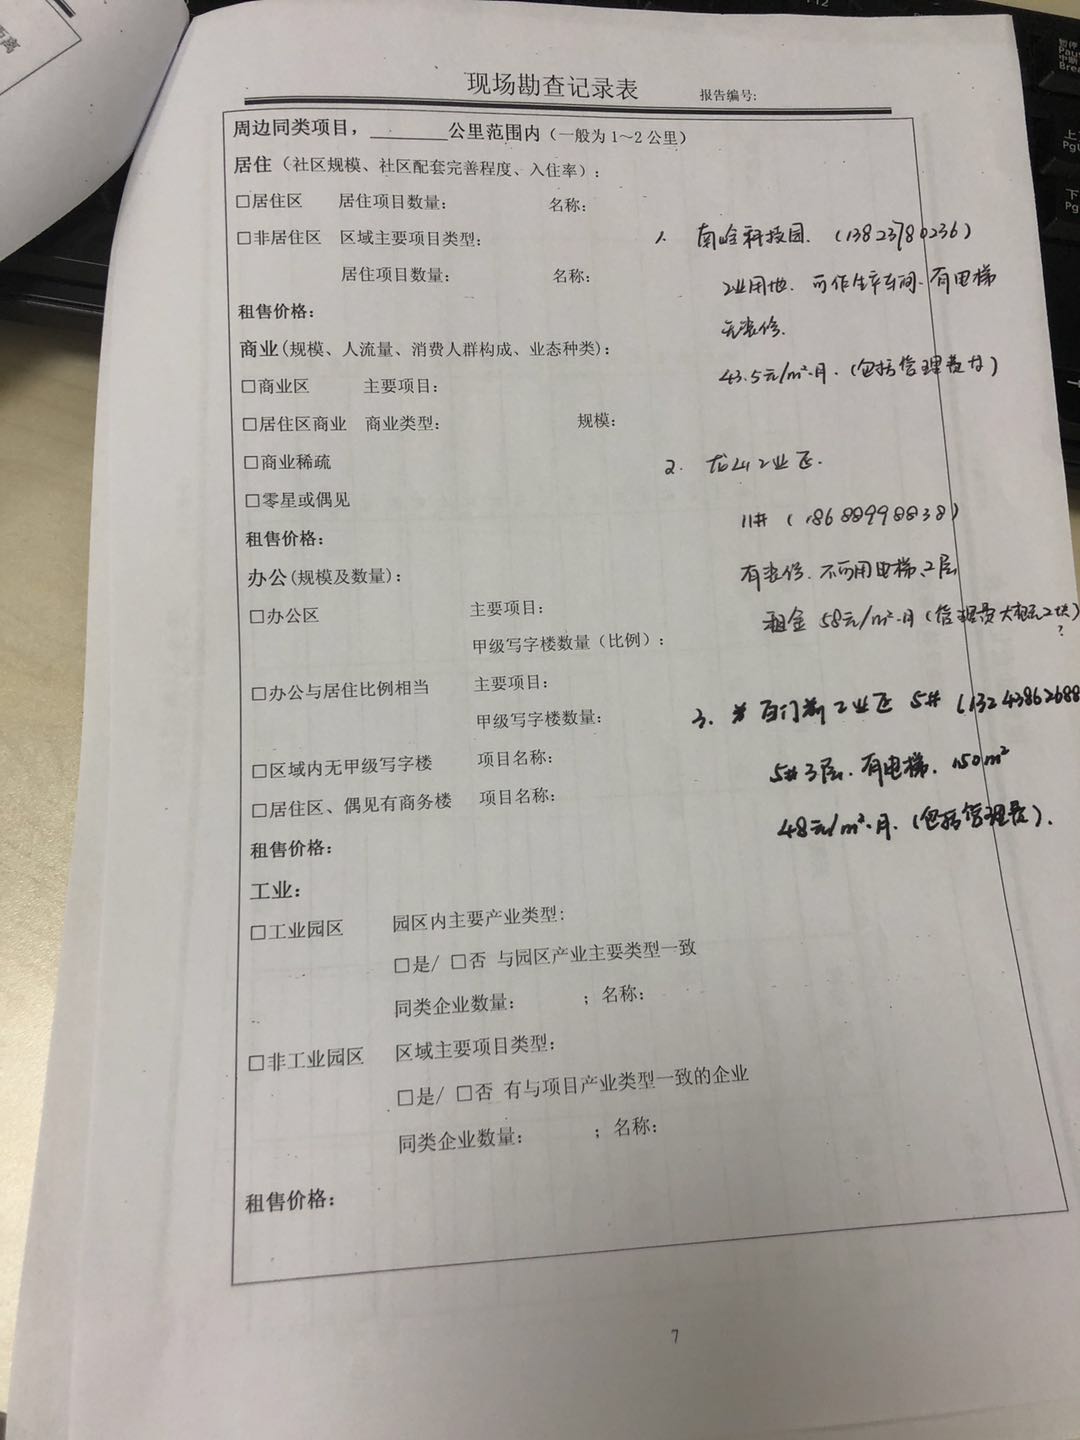 距离
现场勘查记录表 报告编号:
周边同类项目，________公里范围内（一般为1～2公里）
居住（社区规模、社区配套完善程度、入住率）：
□居住区 居住项目数量： 名称：
□非居住区 区域主要项目类型：
1. 南岭科技园. (13823780236)
居住项目数量： 名称：
工业用地. 可作生产车间. 有电梯
租售价格：
无装修.
商业(规模、人流量、消费人群构成、业态种类)：
43.5元/m²·月. (包括管理费
□商业区 主要项目：
□居住区商业 商业类型： 规模：
□商业稀疏
2. 龙山工业区.
□零星或偶见
11# (18688998838)
租售价格：
办公(规模及数量)：
有装修. 不可用电梯、2层
□办公区 主要项目：
租金 58元/m²·月 (管理费大概2块)
?
甲级写字楼数量（比例）：
□办公与居住比例相当 主要项目：
甲级写字楼数量：
3. 百门前工业区 5# (13243862688
□区域内无甲级写字楼 项目名称：
5# 3层. 有电梯. 150m²
□居住区、偶见有商务楼 项目名称：
48元/m²·月. (包括管理费).
租售价格：
工业：
□工业园区 园区内主要产业类型:
□是/ □否 与园区产业主要类型一致
同类企业数量： ；名称：
□非工业园区 区域主要项目类型：
□是/ □否 有与项目产业类型一致的企业
同类企业数量： ；名称：
租售价格：
7